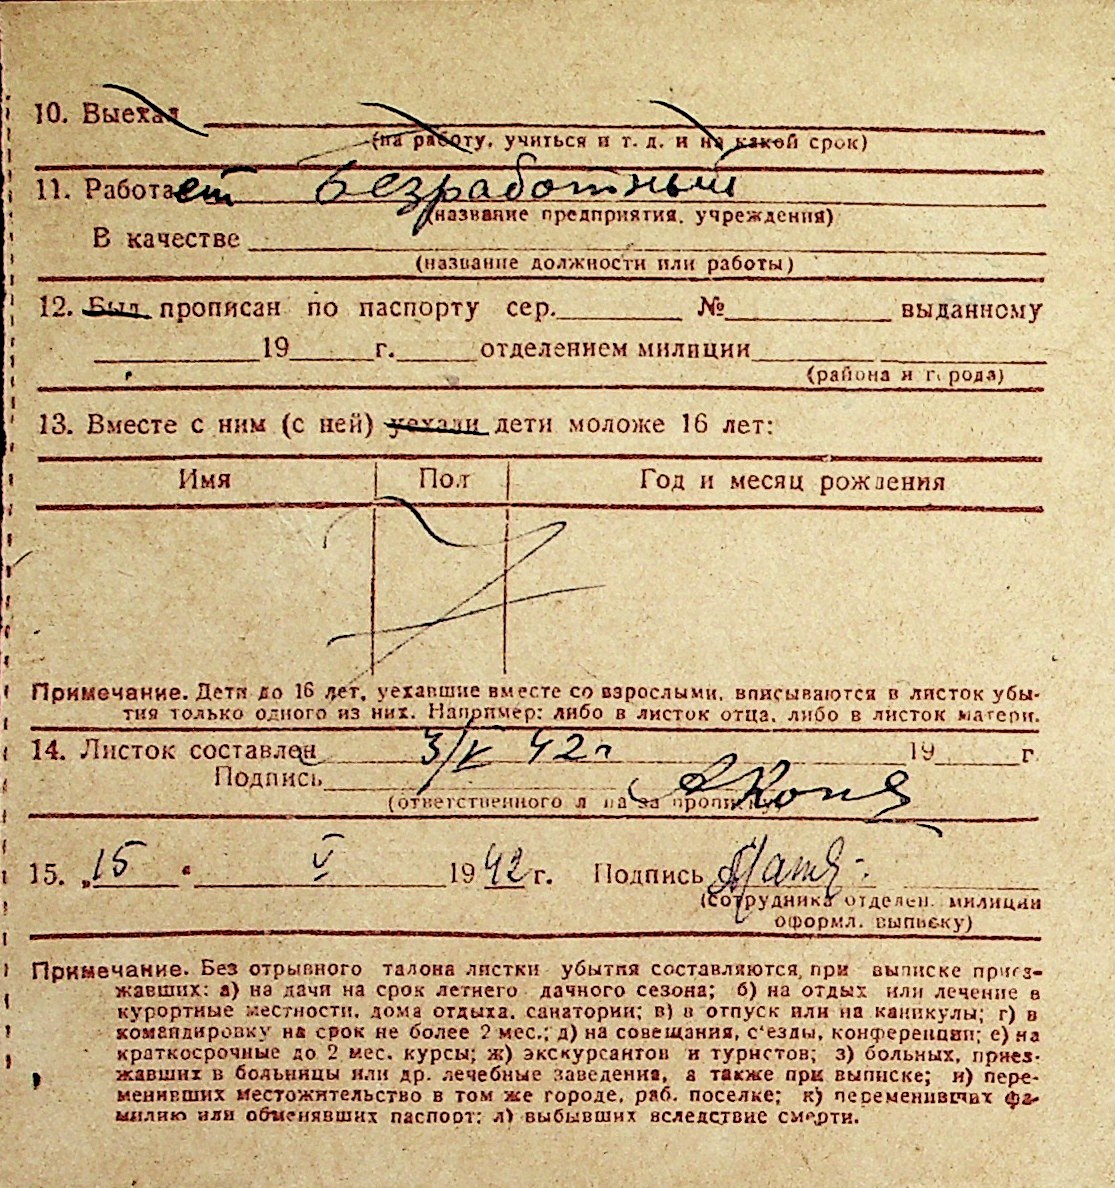 10. Выехал
(на работу, учиться и т. д. и на какой срок)
11. Работает безработный
(название предприятия, учреждения)
В качестве
(название должности или работы)
12. Был прописан по паспорту сер. № выданному
19 г. отделением милиции
(района и города)
13. Вместе с ним (с ней) уехали дети моложе 16 лет:
Имя Пол Год и месяц рождения
Примечание. Дети до 16 лет, уехавшие вместе со взрослыми, вписываются в листок убы-
тия только одного из них. Например: либо в листок отца, либо в листок матери.
14. Листок составлен 3/V 42 г 19 г.
Подпись
(ответственного лица за прописку)
15. „15 “ V 1942 г. Подпись
(сотрудника отделен. милиции
оформл. выписку)
Примечание. Без отрывного талона листки убытия составляются при выписке приез-
жавших: а) на дачи на срок летнего дачного сезона; б) на отдых или лечение в
курортные местности, дома отдыха, санатории; в) в отпуск или на каникулы; г) в
командировку на срок не более 2 мес.; д) на совещания, с'езды, конференции; е) на
краткосрочные до 2 мес. курсы; ж) экскурсантов и туристов; з) больных, приез-
жавших в больницы или др. лечебные заведения, а также при выписке; и) пере-
менивших местожительство в том же городе, раб. поселке; к) переменивших фа-
милию или обменявших паспорт; л) выбывших вследствие смерти.